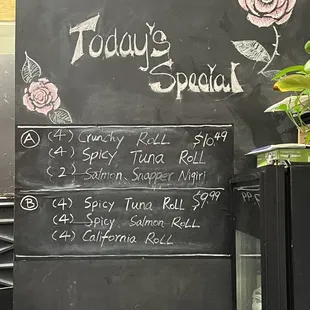 Today's
Special
A (4) Crunchy Roll $10.49
(4) Spicy Tuna Roll
(2) Salmon, Snapper Nigiri
B (4) Spicy Tuna Roll $9.99
(4) Spicy Salmon Roll
(4) California Roll